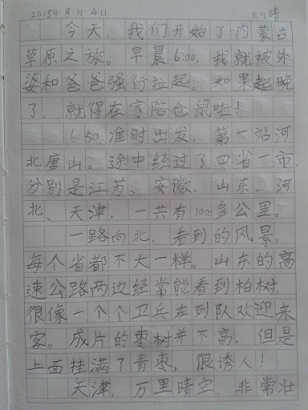 2015年8月4日 天气晴
今天，我们开始了内蒙古
草原之旅。早晨6:00，我就被外
婆和爸爸强行拉起，如果起晚
了，就得在家陪仓鼠啦！
6:50准时出发，第一站河
北唐山，途中经过了四省一市
分别是江苏、安徽、山东、河
北、天津，一共有1000多公里。
一路向北，看到的风景，
每个省都不大一样。山东的高
速公路两边经常能看到柏树
很像一个个卫兵在列队欢迎来
客。成片的枣树并不高，但是
上面挂满了青枣，很诱人！
天津，万里晴空，非常壮